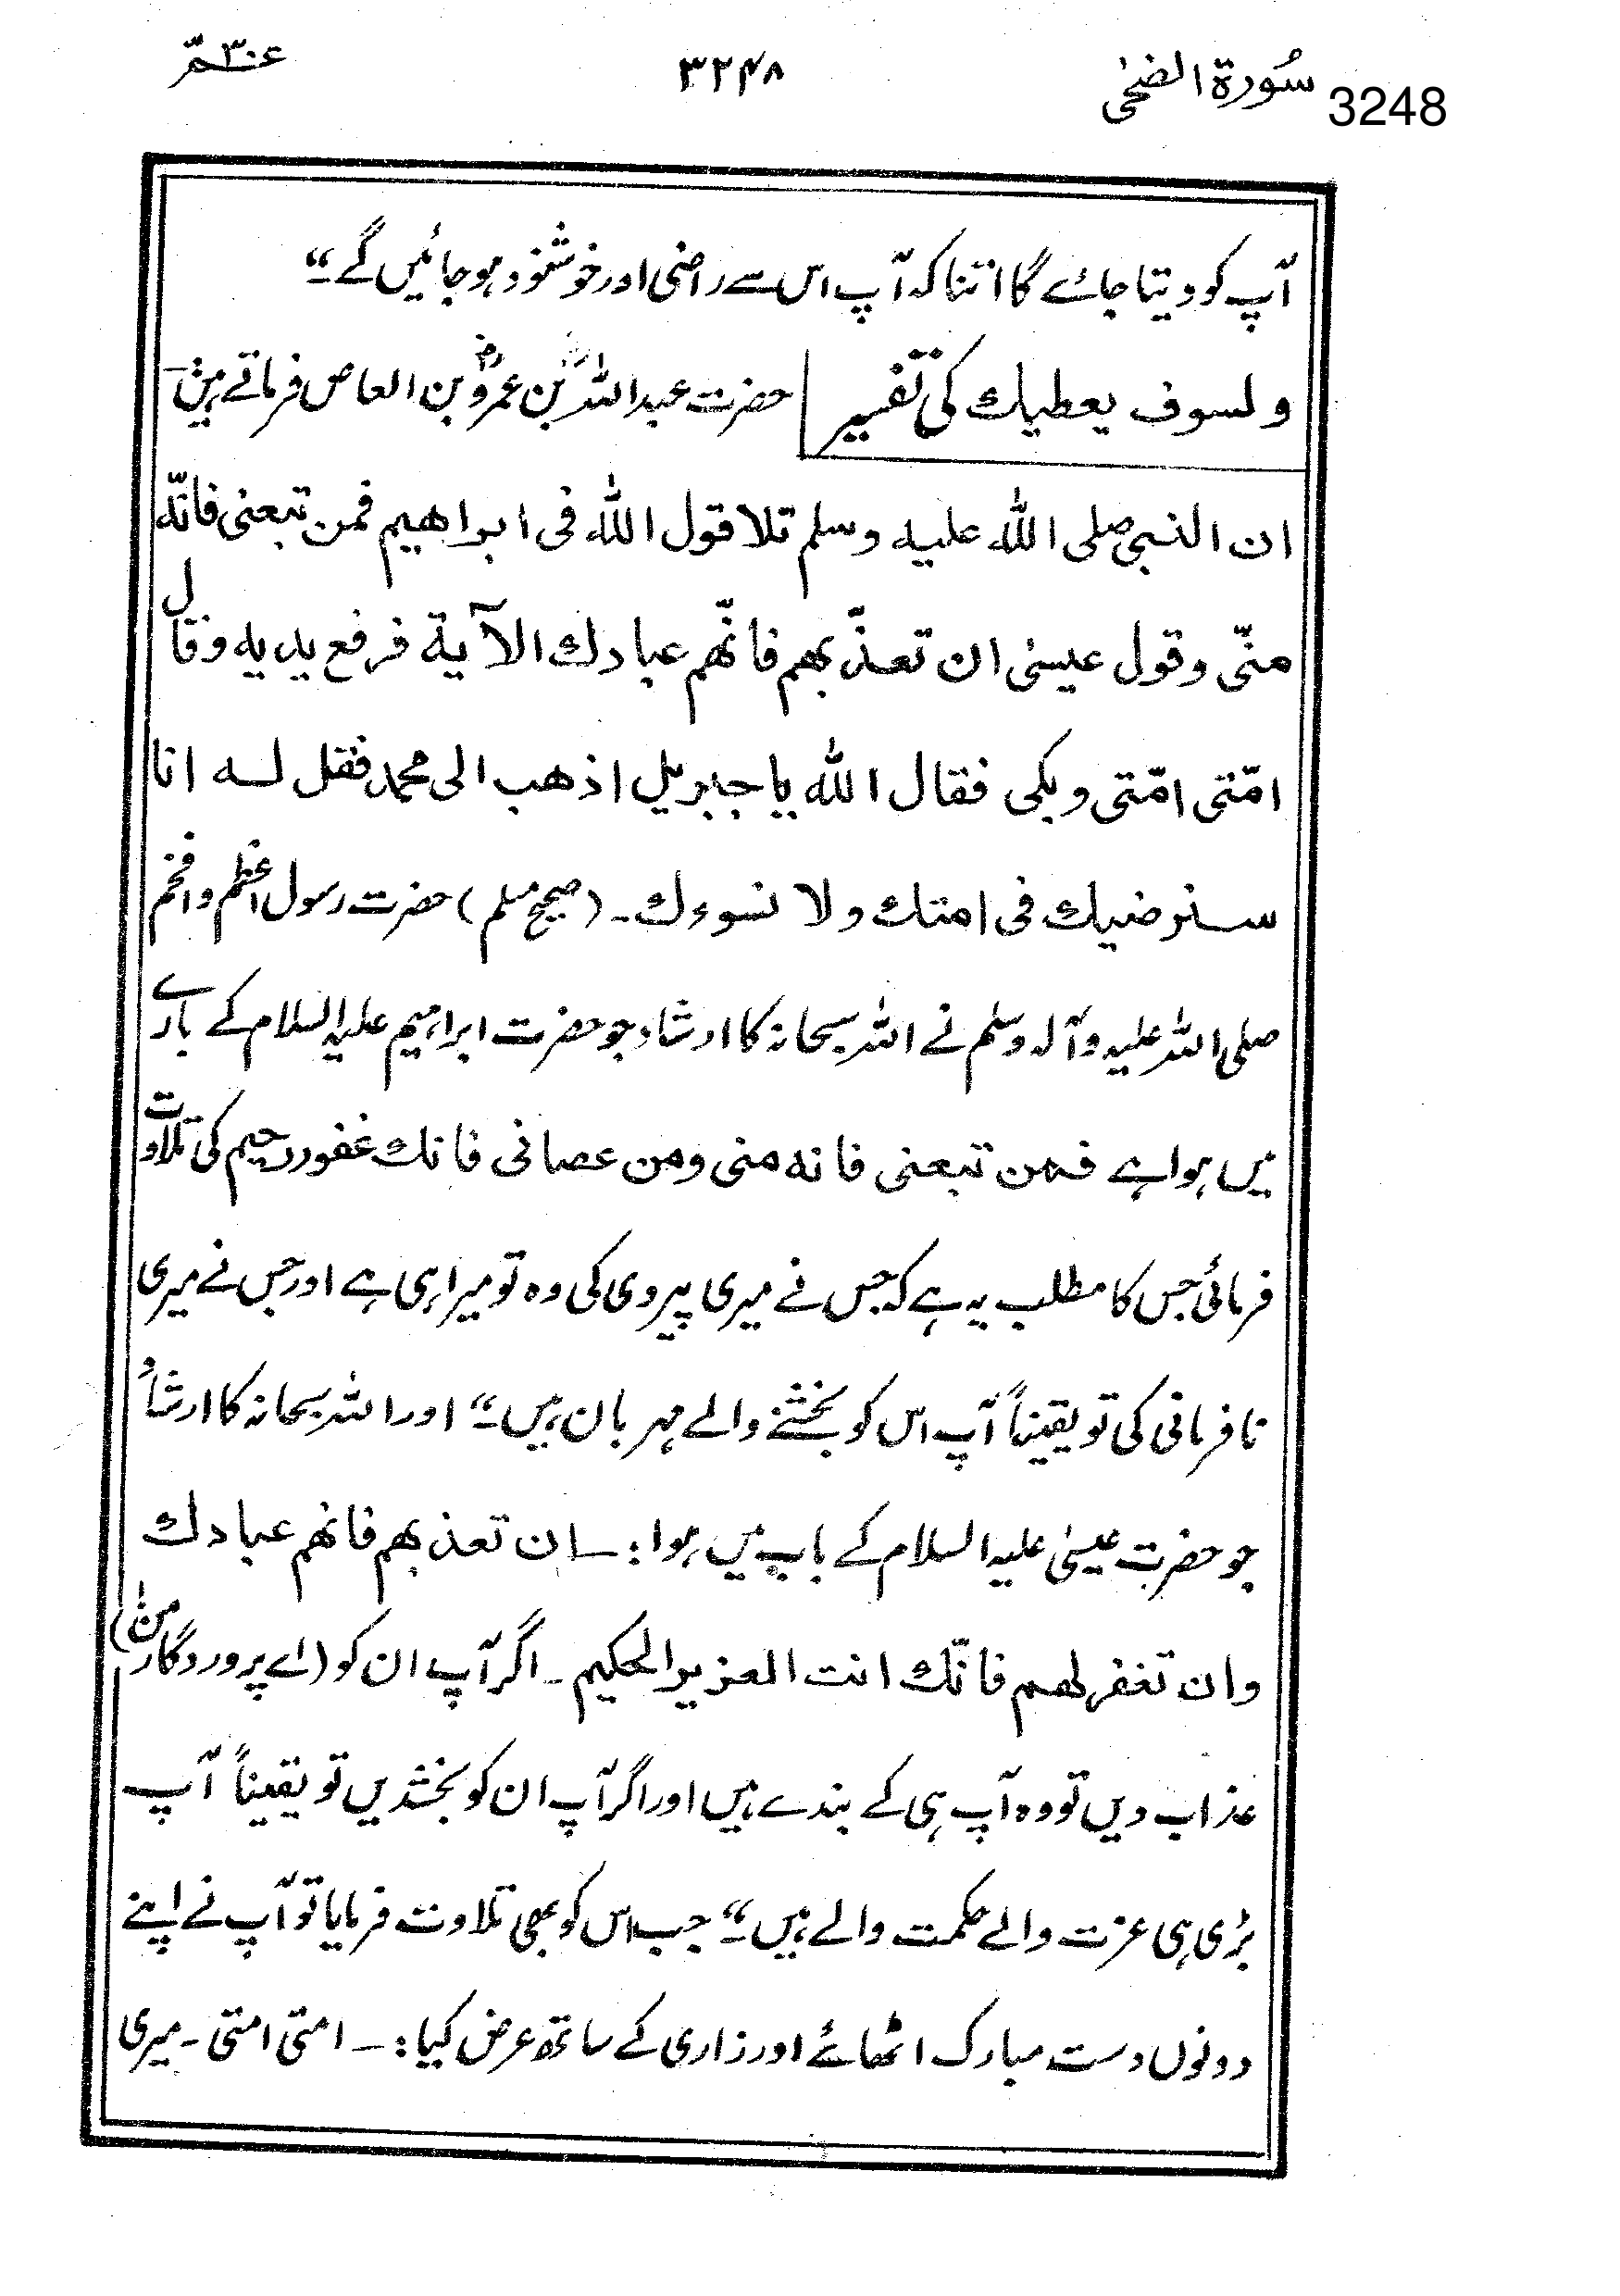 سُورة الضحیٰ 3248
۳۲۴۸
عمّ ۳۰
آپ کو دیتا جائے گا اتنا کہ آپ اس سے راضی اور خوشنود ہو جائیں گے۔“
ولسوف یعطیك کی تفسیر حضرت عبداللہ بن عمروؓ بن العاص فرماتے ہیں۔
ان النبی صلی اللّٰه علیه وسلم تلا قول اللّٰه فی ابراهیم فمن تبعنی فانّه
منّی وقول عیسیٰ ان تعذّبهم فانّهم عبادك الآیة فرفع یدیه وقال
امّتی امّتی وبکی فقال اللّٰه یا جبریل اذهب الی محمد فقل لـه انا
سنرضیك فی امتك ولا نسوءك۔ (صحیح مسلم) حضرت رسول اعظم وافخم
صلی اللہ علیہ وآلہ وسلم نے اللہ سبحانہ کا ارشاد جو حضرت ابراہیم علیہ السلام کے بارے
میں ہوا ہے فمن تبعنی فانه منی ومن عصانی فانك غفور رحیم کی تلاوت
فرمائی جس کا مطلب یہ ہے کہ جس نے میری پیروی کی وہ تو میرا ہی ہے اور جس نے میری
نافرمانی کی تو یقیناً آپ اس کو بخشنے والے مہربان ہیں۔“ اور اللہ سبحانہ کا ارشاد
جو حضرت عیسیٰ علیہ السلام کے باب میں ہوا :۔ ان تعذبهم فانهم عبادك
وان تغفر لهم فانّك انت العزیز الحکیم۔ اگر آپ ان کو (اے پروردگار من)
عذاب دیں تو وہ آپ ہی کے بندے ہیں اور اگر آپ ان کو بخشدیں تو یقیناً آپ
بڑی ہی عزت والے حکمت والے ہیں۔“ جب اس کو بھی تلاوت فرمایا تو آپ نے اپنے
دونوں دست مبارک اٹھائے اور زاری کے ساتھ عرض کیا :۔ امتی امتی۔ میری